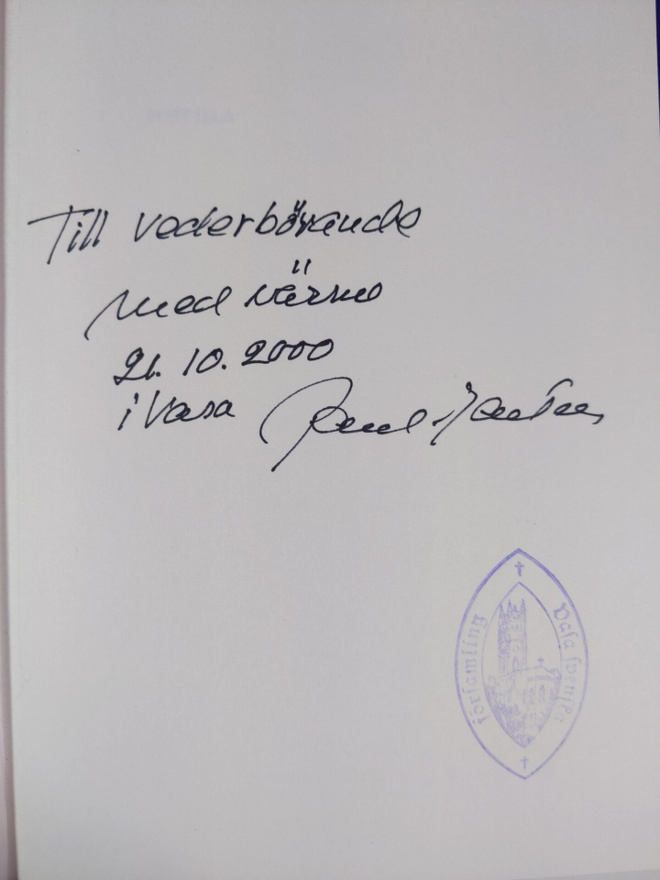 Till vederbörande
med värme
21.10.2000
i Vasa
Vasa svenska
församling